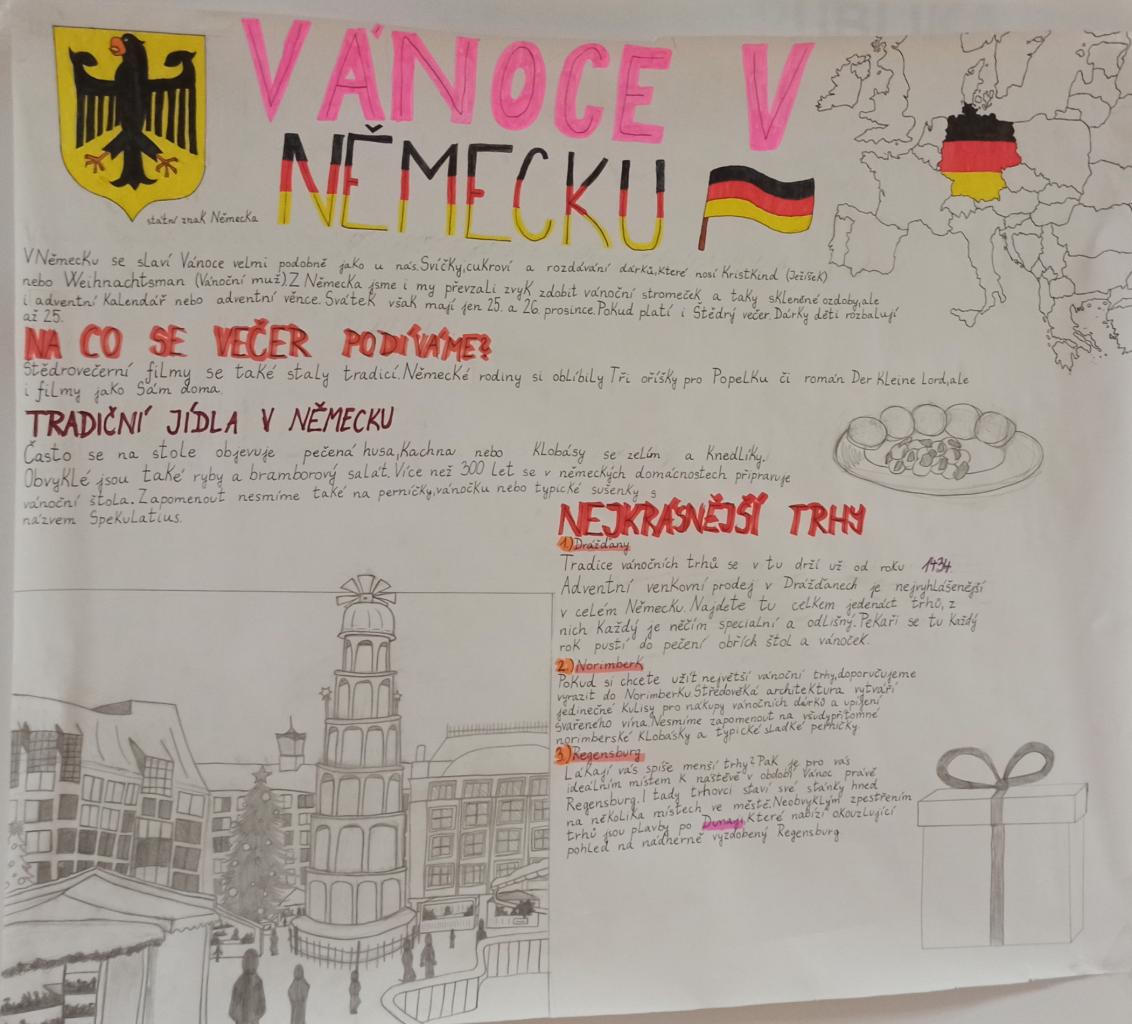 VÁNOCE V
NĚMECKU
státní znak Německa
V Německu se slaví Vánoce velmi podobně jako u nás. Svíčky, cukroví a rozdávání dárků, které nosí Kristkind (Ježíšek)
nebo Weihnachtsman (Vánoční muž). Z Německa jsme i my převzali zvyk zdobit vánoční stromeček a taky skleněné ozdoby, ale
i adventní kalendář nebo adventní věnce. Svátek však mají jen 25. a 26. prosince. Pokud platí i Štědrý večer. Dárky děti rozbalují
až 25.
NA CO SE VEČER PODÍVÁME?
Štědrovečerní filmy se také staly tradicí. Německé rodiny si oblíbily Tři oříšky pro Popelku či román Der Kleine Lord, ale
i filmy jako Sám doma.
TRADIČNÍ JÍDLA V NĚMECKU
Často se na stole objevuje pečená husa, kachna nebo klobásy se zelím a knedlíky.
Obvyklé jsou také ryby a bramborový salát. Více než 300 let se v německých domácnostech připravuje
vánoční štola. Zapomenout nesmíme také na perníčky, vánočku nebo typické sušenky s
názvem Spekulatius.
NEJKRÁSNĚJŠÍ TRHY
1) Drážďany
Tradice vánočních trhů se v tu drží už od roku 1434.
Adventní venkovní prodej v Drážďanech je nejvyhlášenější
v celém Německu. Najdete tu celkem jedenáct trhů, z
nich každý je něčím specialní a odlišný. Pekaři se tu každý
rok pustí do pečení obřích štol a vánoček.
2) Norimberk
Pokud si chcete užít největší vánoční trhy, doporučujeme
vyrazit do Norimberku. Středověká architektura vytváří
jedinečné kulisy pro nákupy vánočních dárků a upíjení
svařeného vína. Nesmíme zapomenout na všudypřítomné
norimberské klobásky a typické sladké perníčky.
3) Regensburg
Lákají vás spíše menší trhy? Pak je pro vás
ideálním místem k náštěvě v období Vánoc právě
Regensburg. I tady trhovci staví své stánky hned
na několika místech ve městě. Neobvyklým zpestřením
trhů jsou plavby po Dunaji, které nabízí okouzlující
pohled na nádherně vyzdobený Regensburg